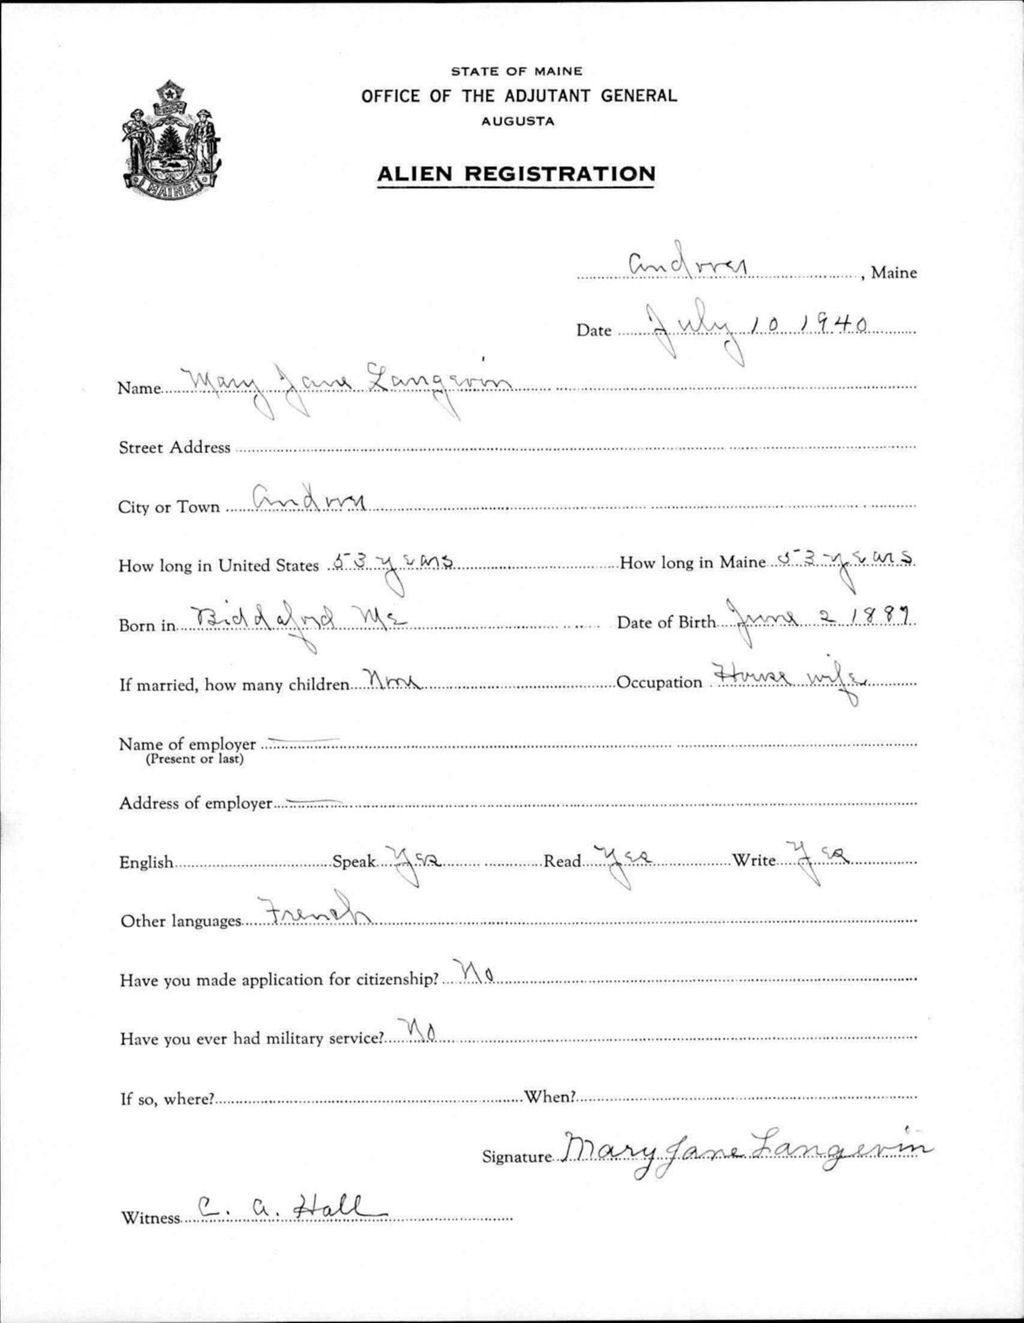 STATE OF MAINE
OFFICE OF THE ADJUTANT GENERAL
AUGUSTA
MAINE
ALIEN REGISTRATION
Andover, Maine
Date July 10 1940
Name Mary Jane Langevin
Street Address
City or Town Andover
How long in United States 53 years How long in Maine 53 years
Born in Biddaford Me Date of Birth June 2 1887
If married, how many children None Occupation House wife
Name of employer —
(Present or last)
Address of employer —
English Speak Yes Read Yes Write Yes
Other languages French
Have you made application for citizenship? No
Have you ever had military service? No
If so, where? When?
Signature Mary Jane Langevin
Witness C. A. Hall